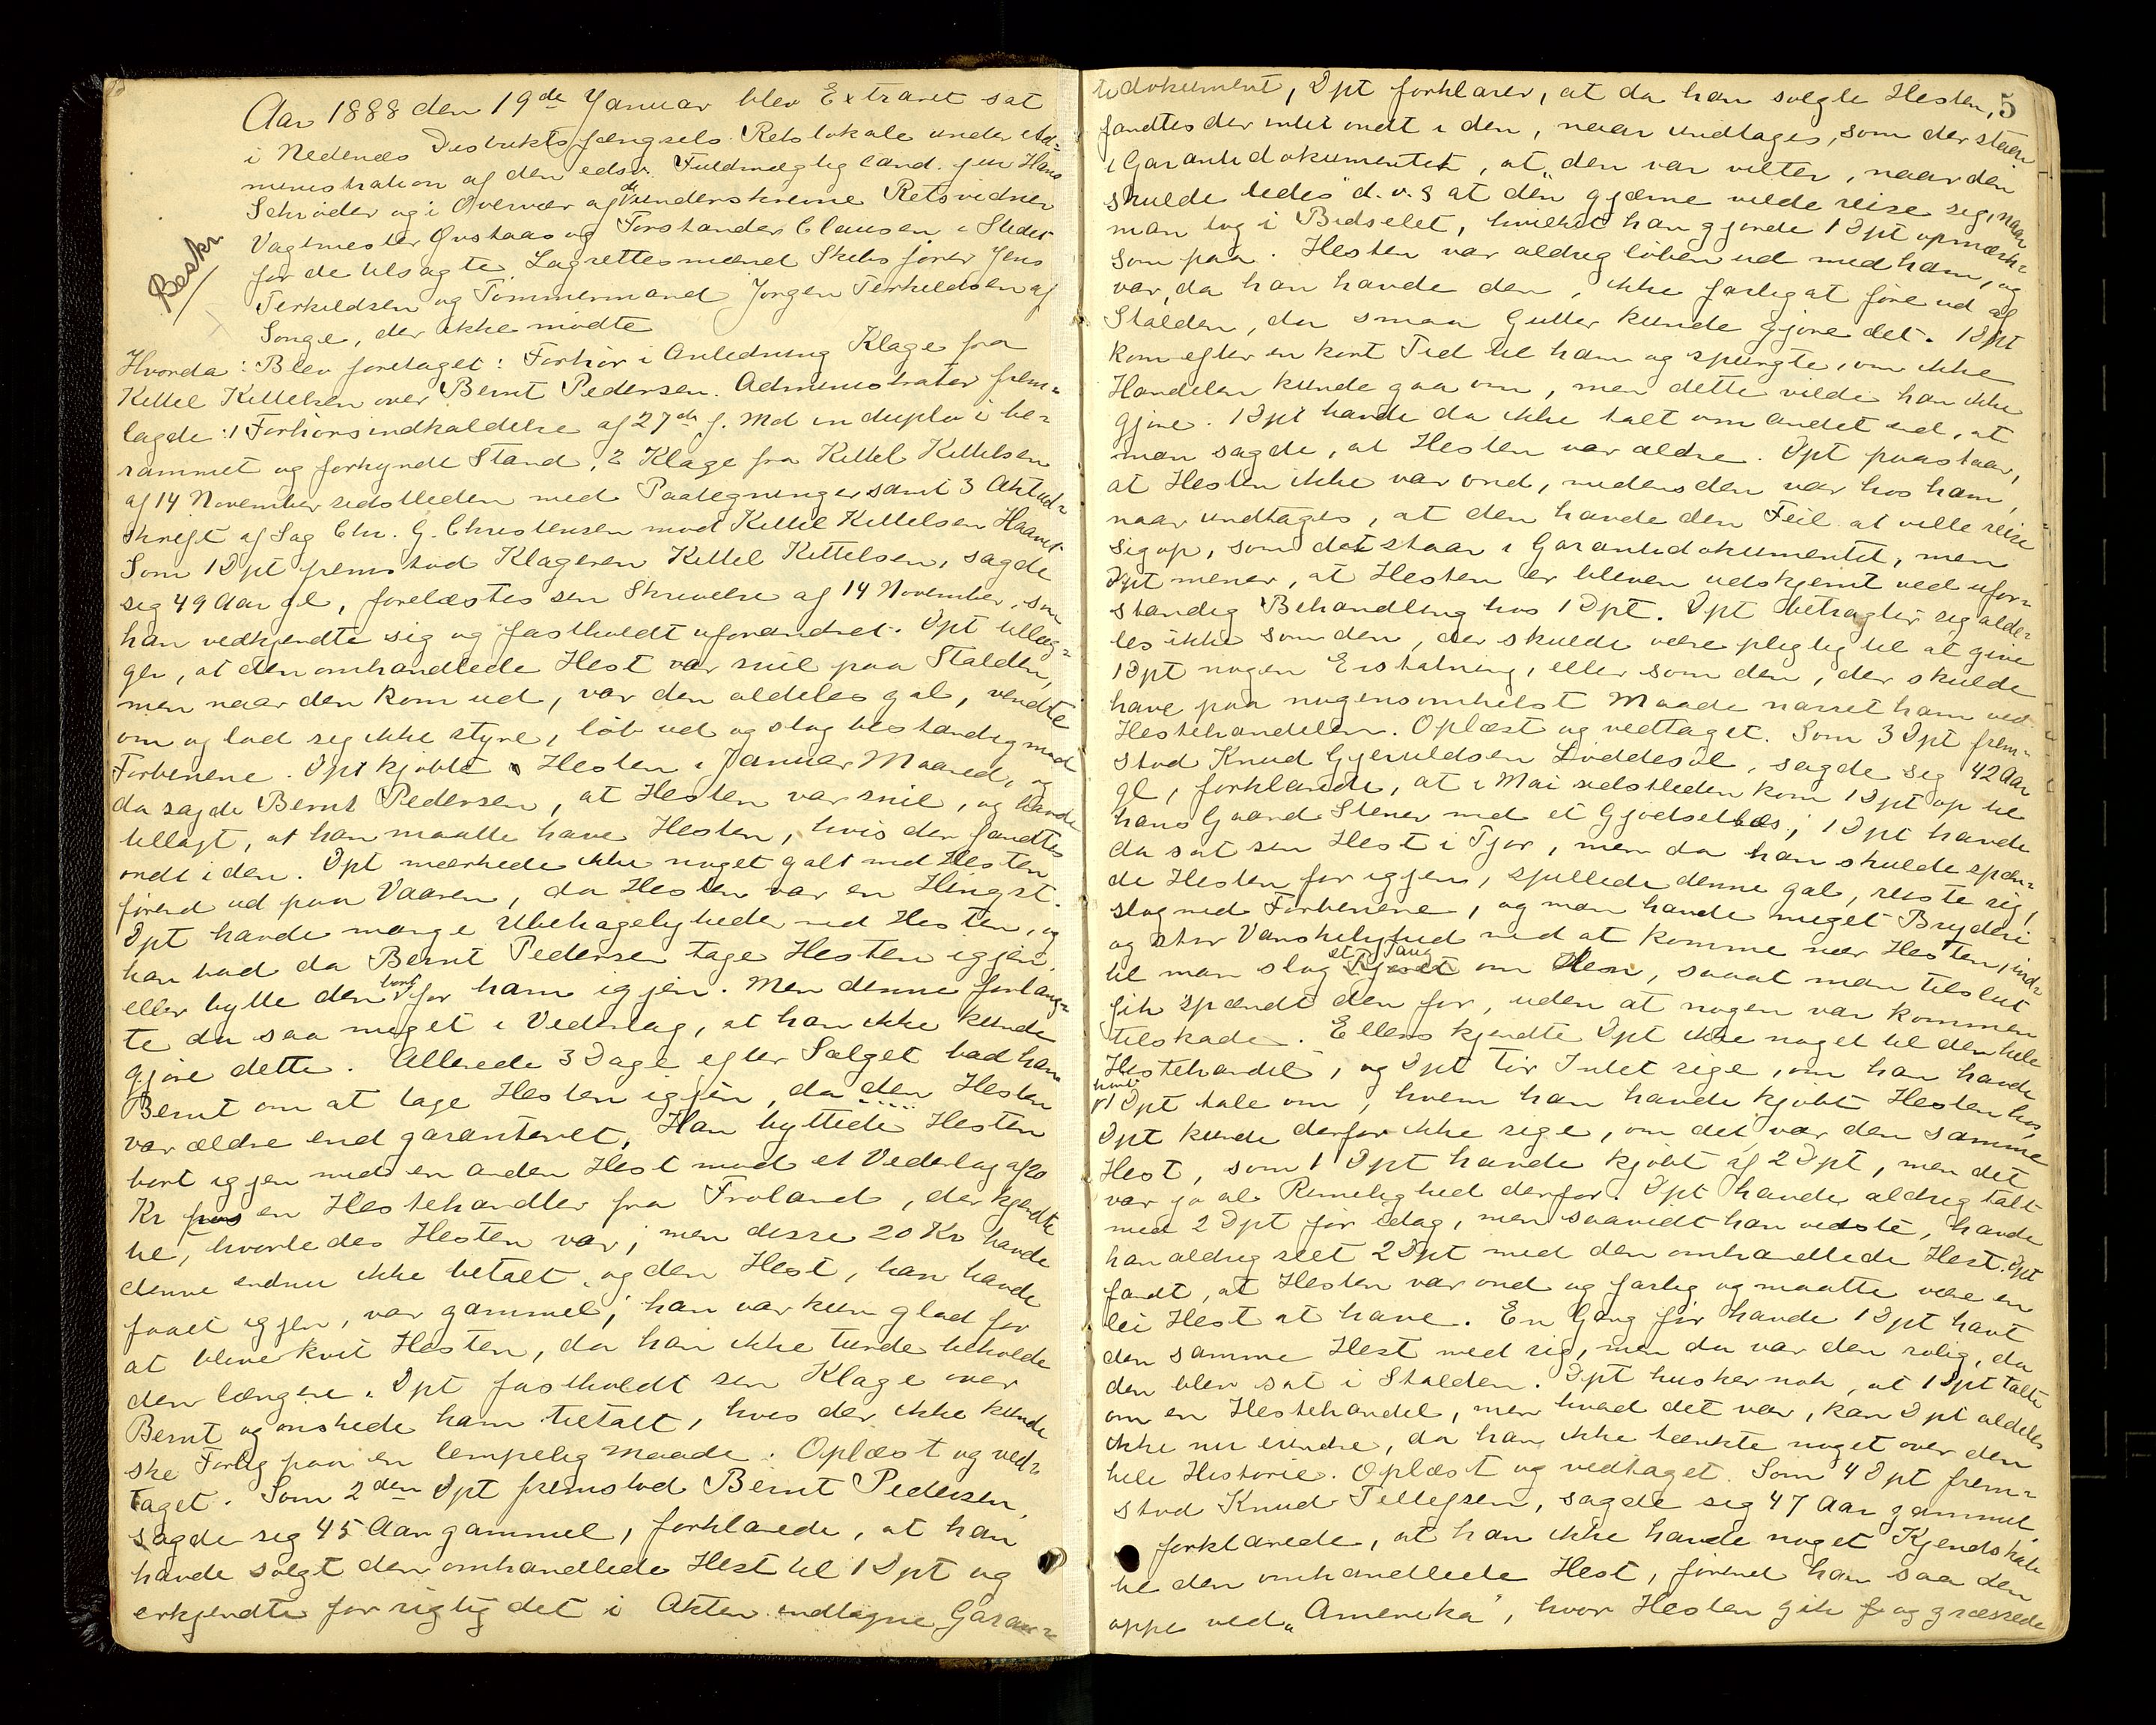 Aar 1888 den 19de Januar blev Extraret sat
i Nedenæs Distriktsfængsels Retslokale under Ad=
ministration af den edsv. Fuldmægtig cand. jur Hans
Schrøder og i Overvær af de underskrevne Retsvidner
Vagtmester Gustaas og Forstander Clausen i Stedet
for de tilsagte Lagrettesmænd Skibsfører Jens
Terkildsen og Tømmermand Jørgen Terkildsen af
Songe, der ikke mødte
Beskr
Hvorda: Blev foretaget: Forhør i Anledning Klage fra
Kittel Kittelsen over Bernt Pedersen. Administrator frem=
lagde: 1 Forhørsindkaldelse af 27de f. Md in duplo i be=
rammet og forkyndt Stand, 2 Klage fra Kittel Kittelsen
af 14 November sidstleden med Paategninger samt 3 Aktud=
skrift af Sag Chr. G. Christensen mod Kittel Kittelsen Haavet
Som 1 Dpt fremstod Klageren Kittel Kittelsen, sagde
sig 49 Aar gl, forelæstes sin Skrivelse af 14 November, som
han vedkjendte sig og fastholdt uforandret. Dpt tillæg=
ger, at den omhandlede Hest var snil paa Stalden,
men naar den kom ud, var den aldeles gal, vendte
om og lod sig ikke styre, løb ud og slog bestandig med
Forbenene. Dpt kjøbte Hesten i Januar Maaned, og
da sagde Bernt Pedersen, at Hesten var snil, og havde
tillagt, at han maatte have Hesten, hvis der fandtes
ondt i den. Dpt mærkede ikke noget galt med Hesten
førend ud paa Vaaren, da Hesten var en Hingst.
Dpt havde mange Ubehageligheder med Hesten, og
han bad da Bernt Pedersen tage Hesten igjen,
eller bytte den bort for ham igjen. Men denne forlang=
te da saa meget i Vederlag, at han ikke kunde
gjøre dette. Allerede 3 Dage efter Salget bad han
Bernt om at tage Hesten igjen, da den Hesten
var ældre end garanteret. Han byttede Hesten
bort igjen med en anden Hest mod et Vederlag af 20
Kr hos en Hestehandler fra Froland, der kjendte
til, hvorledes Hesten var; men disse 20 Kr havde
denne endnu ikke betalt, og den Hest, han havde
faaet igjen, var gammel; han var kun glad for
at blive kvit Hesten, da han ikke turde beholde
den længere. Dpt fastholdt sin Klage over
Bernt og ønskede ham tiltalt, hvis der ikke kunde
ske Forlig paa en lempelig Maade. Oplæst og ved=
taget. Som 2den Dpt fremstod Bernt Pedersen,
sagde sig 45 Aar gammel, forklarede, at han
havde solgt den omhandlede Hest til 1 Dpt og
erkjendte for rigtig det i Akten indtagne Garan=
5
tidokument, Dpt forklarer, at da han solgte Hesten,
fandtes der intet ondt i den, naar undtages, som der staar
i Garantidokumentet, at "den var vilter, naar den
skulde ledes" d.v.s at den gjærne vilde reise sig, naar
man tog i Bidselet, hvilket han gjorde 1 Dpt opmærk=
som paa. Hesten var aldrig løben ud med ham, og
var, da han havde den, ikke farlig at føre ud af
Stalden, da smaa Gutter kunde gjøre det. 1 Dpt
kom efter en kort Tid til ham og spurgte, om ikke
Handelen kunde gaa om, men dette vilde han ikke
gjøre. 1 Dpt havde da ikke talt om andet end, at
man sagde, at Hesten var ældre. Dpt paastaar,
at Hesten ikke var ond, medens den var hos ham,
naar undtages, at den havde den Feil at ville reise
sig op, som det staar i Garantidokumentet, men
Dpt mener, at Hesten er bleven udskjemt ved ufor=
standig Behandling hos 1 Dpt. Dpt betragter sig alde=
les ikke som den, der skulde være pligtig til at give
1 Dpt nogen Erstatning, eller som den, der skulde
have paa nogensomhelst Maade narret ham ved
Hestehandelen. Oplæst og vedtaget. Som 3 Dpt frem=
stod Knud Gjeruldsen Løddesøl, sagde sig 42 Aar
gl, forklarede, at i Mai sidstleden kom 1 Dpt op til
hans Gaard Stener med et Gjødsellæs; 1 Dpt havde
da sat sin Hest i Tjor, men da han skulde spæn=
de Hesten for igjen, spillede denne gal, reiste sig,
slog med Forbenene, og man havde meget Bryderi
og stor Vanskelighed med at komme nær Hesten, ind=
til man slog et Taug om den, saaat man tilslut
fik spændt den for, uden at nogen var kommen
tilskade. Ellers kjendte Dpt ikke noget til den hele
Hestehandel, og Dpt tør Intet sige, om han havde
hørt 1 Dpt tale om, hvem han havde kjøbt Hesten hos,
Dpt kunde derfor ikke sige, om det var den samme
Hest, som 1 Dpt havde kjøbt af 2 Dpt, men det
var jo al Rimelighed derfor. Dpt havde aldrig talt
med 2 Dpt før idag, men saavidt han vidste, havde
han aldrig seet 2 Dpt med den omhandlede Hest. Dpt
fandt, at Hesten var ond og farlig og maatte være en
lei Hest at have. En Gang før havde 1 Dpt havt
den samme Hest med sig, men da var den rolig, da
den blev sat i Stalden. Dpt husker nok, at 1 Dpt talte
om en Hestehandel, men hvad det var, kan Dpt aldeles
ikke nu erindre, da han ikke tænkte noget over den
hele Historie. Oplæst og vedtaget. Som 4 Dpt frem=
stod Knud Tellefsen, sagde sig 47 Aar gammel,
forklarede, at han ikke havde noget Kjendskab
til den omhandlede Hest, førend han saa den
oppe ved "Amerika", hvor Hesten gik og græssede